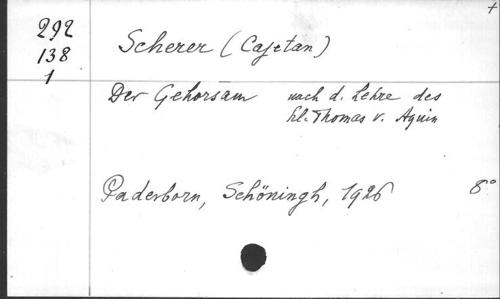 +
292
138
1
Scherer (Cajetan)
Der Gehorsam nach d. Lehre des
hl. Thomas v. Aquin
Paderborn, Schöningh, 1926 8°